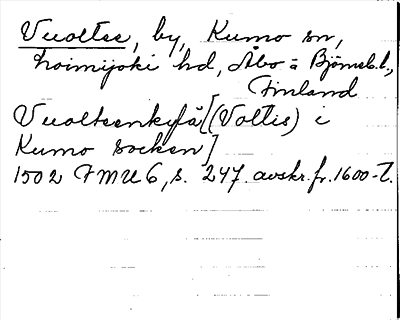 Vuoltee, by, Kumo sn,
Loimijoki hd, Åbo- o Björneb. l.,
Finland
Vuolteenkylä [(Voltis) i
Kumo socken]
1502 FMU 6, s. 247. avskr. fr. 1600-t.